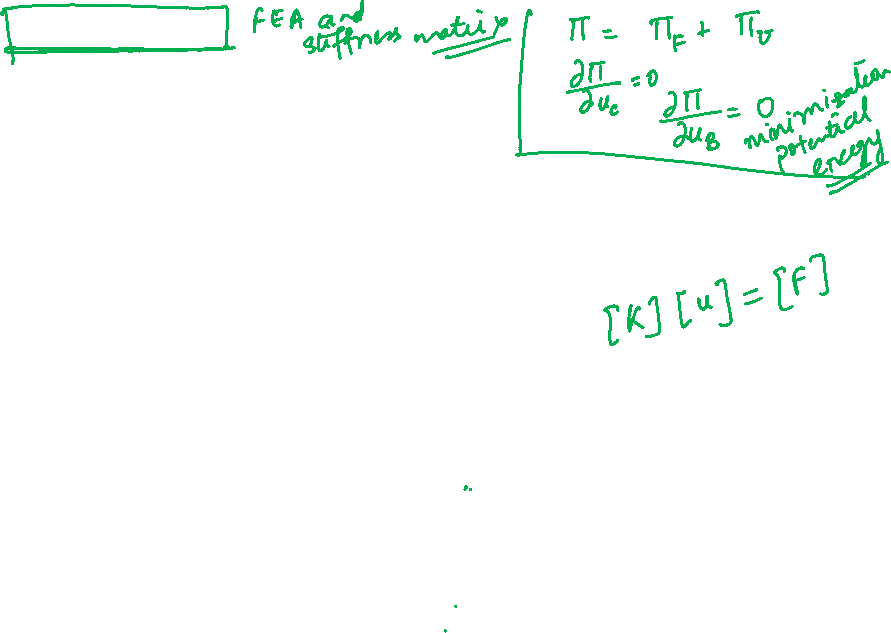 FEA and
stiffness matrix
Π = Π_F + Π_U
∂Π/∂u_C = 0
∂Π/∂u_B = 0
minimization
potential
energy
[K] [u] = [F]